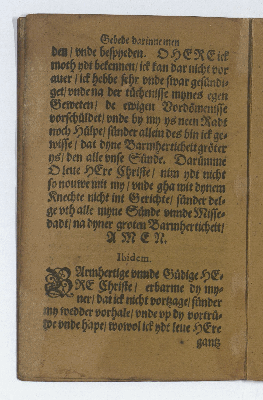 Gebede darinne men
den / vnde bespyeden. O HERE ick
moth ydt bekennen / ick kan dar nicht vor
auer / ick hebbe sehr vnde swar gesündi-
get / vnde na der tüchenisse mynes egen
Geweten / de ewigen Vordömenisse
vorschüldet / vnde by my ys neen Radt
noch Hülpe / sünder allein des bin ick ge-
wisse / dat dyne Barmherticheit gröter
ys / den alle vnse Sünde. Darümme
O leue HEre Christe / nim ydt nicht
so nouwe mit my / vnde gha mit dynem
Knechte nicht int Gerichte / sünder del-
ge vth alle myne Sünde vnnde Misse-
dadt / na dyner groten Barmherticheit /
A M E N.
Ibidem.
BArmhertige vnnde Güdige HE-
RE Christe / erbarme dy my-
ner / dat ick nicht vortzage / sünder
my wedder vorhale / vnde vp dy vortrü-
we vnde hape / wowol ick ydt leue HEre
gantz